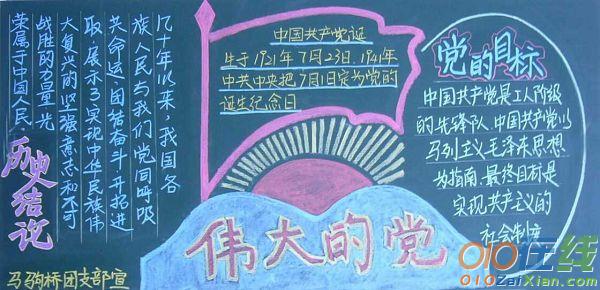 几十年以来,我国各
族人民与我们党同呼吸
共命运,团结奋斗,开招进
取,展示了实现中华民族伟
大复兴的坚强意志和不可
战胜的力量,光
荣属于中国人民.
历史结论
马驹桥团支部宣
中国共产党诞
生于1921年7月23日.1941年
中共中央把7月1日定为党的
诞生纪念日
伟大的党
党的目标
中国共产党是工人阶级
的先锋队.中国共产党以
马列主义毛泽东思想
为指南,最终目标是
实现共产主义的
社会制度
010在线
010ZaiXian.com